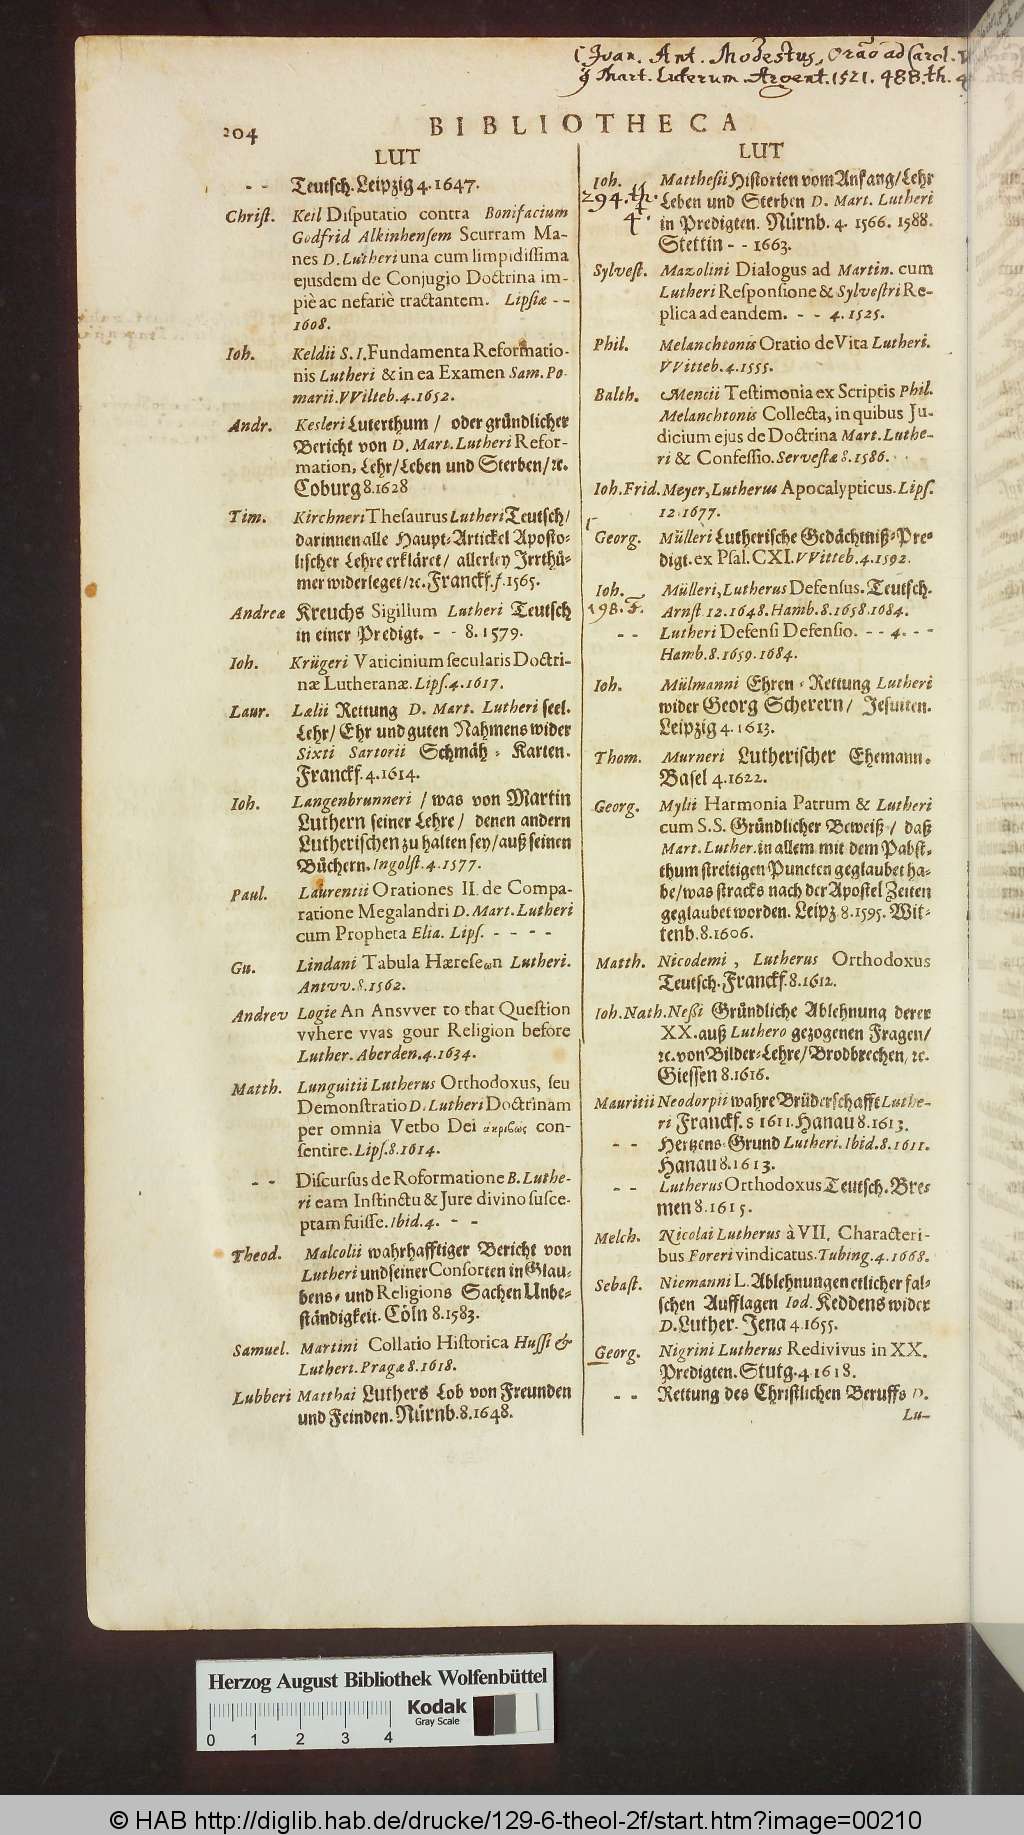 Joan. Ant. Modestus, Orao ad Carol. V
Mart. Luterum. Argent. 1521. 48B. th. 4
204
BIBLIOTHECA
LUT
- - Teutsch. Leipzig 4. 1647.
Christ. Keil Disputatio contra Bonifacium
Godfrid Alkinhensem Scurram Ma-
nes D. Lutheri una cum limpidissima
ejusdem de Conjugio Doctrina im-
piè ac nefariè tractantem. Lipsiæ - -
1608.
Ioh. Keldii S. I. Fundamenta Reformatio-
nis Lutheri & in ea Examen Sam. Po-
marii. VVitteb. 4. 1652.
Andr. Kesleri Luterthum / oder gründlicher
Bericht von D. Mart. Lutheri Refor-
mation, Lehr/Leben und Sterben/ꝛc.
Coburg 8. 1628
Tim. Kirchneri Thesaurus Lutheri Teutsch/
darinnen alle Haupt-Artickel Aposto-
lischer Lehre erkläret/ allerley Irrthü-
mer widerleget/ꝛc. Franckf. f. 1565.
Andreæ Kreuchs Sigillum Lutheri Teutsch
in einer Predigt. - - 8. 1579.
Ioh. Krügeri Vaticinium secularis Doctri-
næ Lutheranæ. Lips. 4. 1617.
Laur. Lælii Rettung D. Mart. Lutheri seel.
Lehr/ Ehr und guten Nahmens wider
Sixti Sartorii Schmäh-Karten.
Franckf. 4. 1614.
Ioh. Langenbrunneri / was von Martin
Luthern seiner Lehre/ denen andern
Lutherischen zu halten sey/auß seinen
Büchern. Ingolst. 4. 1577.
Paul. Laurentii Orationes II. de Compa-
ratione Megalandri D. Mart. Lutheri
cum Propheta Elia. Lips. - - - -
Gu. Lindani Tabula Hæreseωn Lutheri.
Antvv. 8. 1562.
Andrev Logie An Ansvver to that Question
vvhere vvas gour Religion before
Luther. Aberden. 4. 1634.
Matth. Lunguitii Lutherus Orthodoxus, seu
Demonstratio D. Lutheri Doctrinam
per omnia Verbo Dei ακριβως con-
sentire. Lips. 8. 1614.
- - Discursus de Roformatione B. Luthe-
ri eam Instinctu & Jure divino susce-
ptam fuisse. Ibid. 4. - -
Theod. Malcolii wahrhafftiger Bericht von
Lutheri und seiner Consorten in Glau-
bens- und Religions Sachen Unbe-
ständigkeit. Cöln 8. 1583.
Samuel. Martini Collatio Historica Hussi &
Lutheri. Pragæ 8. 1618.
Lubberi Matthai Luthers Lob von Freunden
und Feinden. Nürnb. 8. 1648.
LUT
Ioh. Matthesii Historien vom Anfang/Lehr
294. th. Leben und Sterben D. Mart. Lutheri
4. in Predigten. Nürnb. 4. 1566. 1588.
Stettin - - 1663.
Sylvest. Mazolini Dialogus ad Martin. cum
Lutheri Responsione & Sylvestri Re-
plica ad eandem. - - 4. 1525.
Phil. Melanchtonis Oratio de Vita Lutheri.
VVitteb. 4. 1555.
Balth. Mencii Testimonia ex Scriptis Phil.
Melanchtonis Collecta, in quibus Ju-
dicium ejus de Doctrina Mart. Luthe-
ri & Confessio. Servestæ 8. 1586.
Ioh. Frid. Meyer, Lutherus Apocalypticus. Lips.
12. 1677.
Georg. Mülleri Lutherische Gedächtniß-Pre-
digt. ex Psal. CXI. VVitteb. 4. 1592.
Ioh. Mülleri, Lutherus Defensus. Teutsch.
198. Arnst 12. 1648. Hamb. 8. 1658. 1684.
- - Lutheri Defensi Defensio. - - 4. - -
Hamb. 8. 1659. 1684.
Ioh. Mülmanni Ehren-Rettung Lutheri
wider Georg Scherern/ Jesuiten.
Leipzig 4. 1613.
Thom. Murneri Lutherischer Ehemann.
Basel 4. 1622.
Georg. Mylii Harmonia Patrum & Lutheri
cum S.S. Gründlicher Beweiß/ daß
Mart. Luther. in allem mit dem Pabst-
thum streitigen Puncten geglaubet ha-
be/was stracks nach der Apostel Zeiten
geglaubet worden. Leipz 8. 1595. Wit-
tenb. 8. 1606.
Matth. Nicodemi, Lutherus Orthodoxus
Teutsch. Franckf. 8. 1612.
Ioh. Nath. Neßi Gründliche Ablehnung derer
XX. auß Luthero gezogenen Fragen/
ꝛc. von Bilder-Lehre/Brodbrechen, ꝛc.
Giessen 8. 1616.
Mauritii Neodorpii wahre Brüderschafft Luthe-
ri Franckf. s 1611. Hanau 8. 1613.
- - Hertzens-Grund Lutheri. Ibid. 8. 1611.
Hanau 8. 1613.
- - Lutherus Orthodoxus Teutsch. Bre-
men 8. 1615.
Melch. Nicolai Lutherus à VII. Characteri-
bus Foreri vindicatus. Tubing. 4. 1668.
Sebast. Niemanni L. Ablehnungen etlicher fal-
schen Aufflagen Iod. Keddens wider
D. Luther. Jena 4. 1655.
Georg. Nigrini Lutherus Redivivus in XX.
Predigten. Stutg. 4. 1618.
- - Rettung des Christlichen Beruffs D.
Lu-
Herzog August Bibliothek Wolfenbüttel
Kodak
Gray Scale
0 1 2 3 4
© HAB http://diglib.hab.de/drucke/129-6-theol-2f/start.htm?image=00210